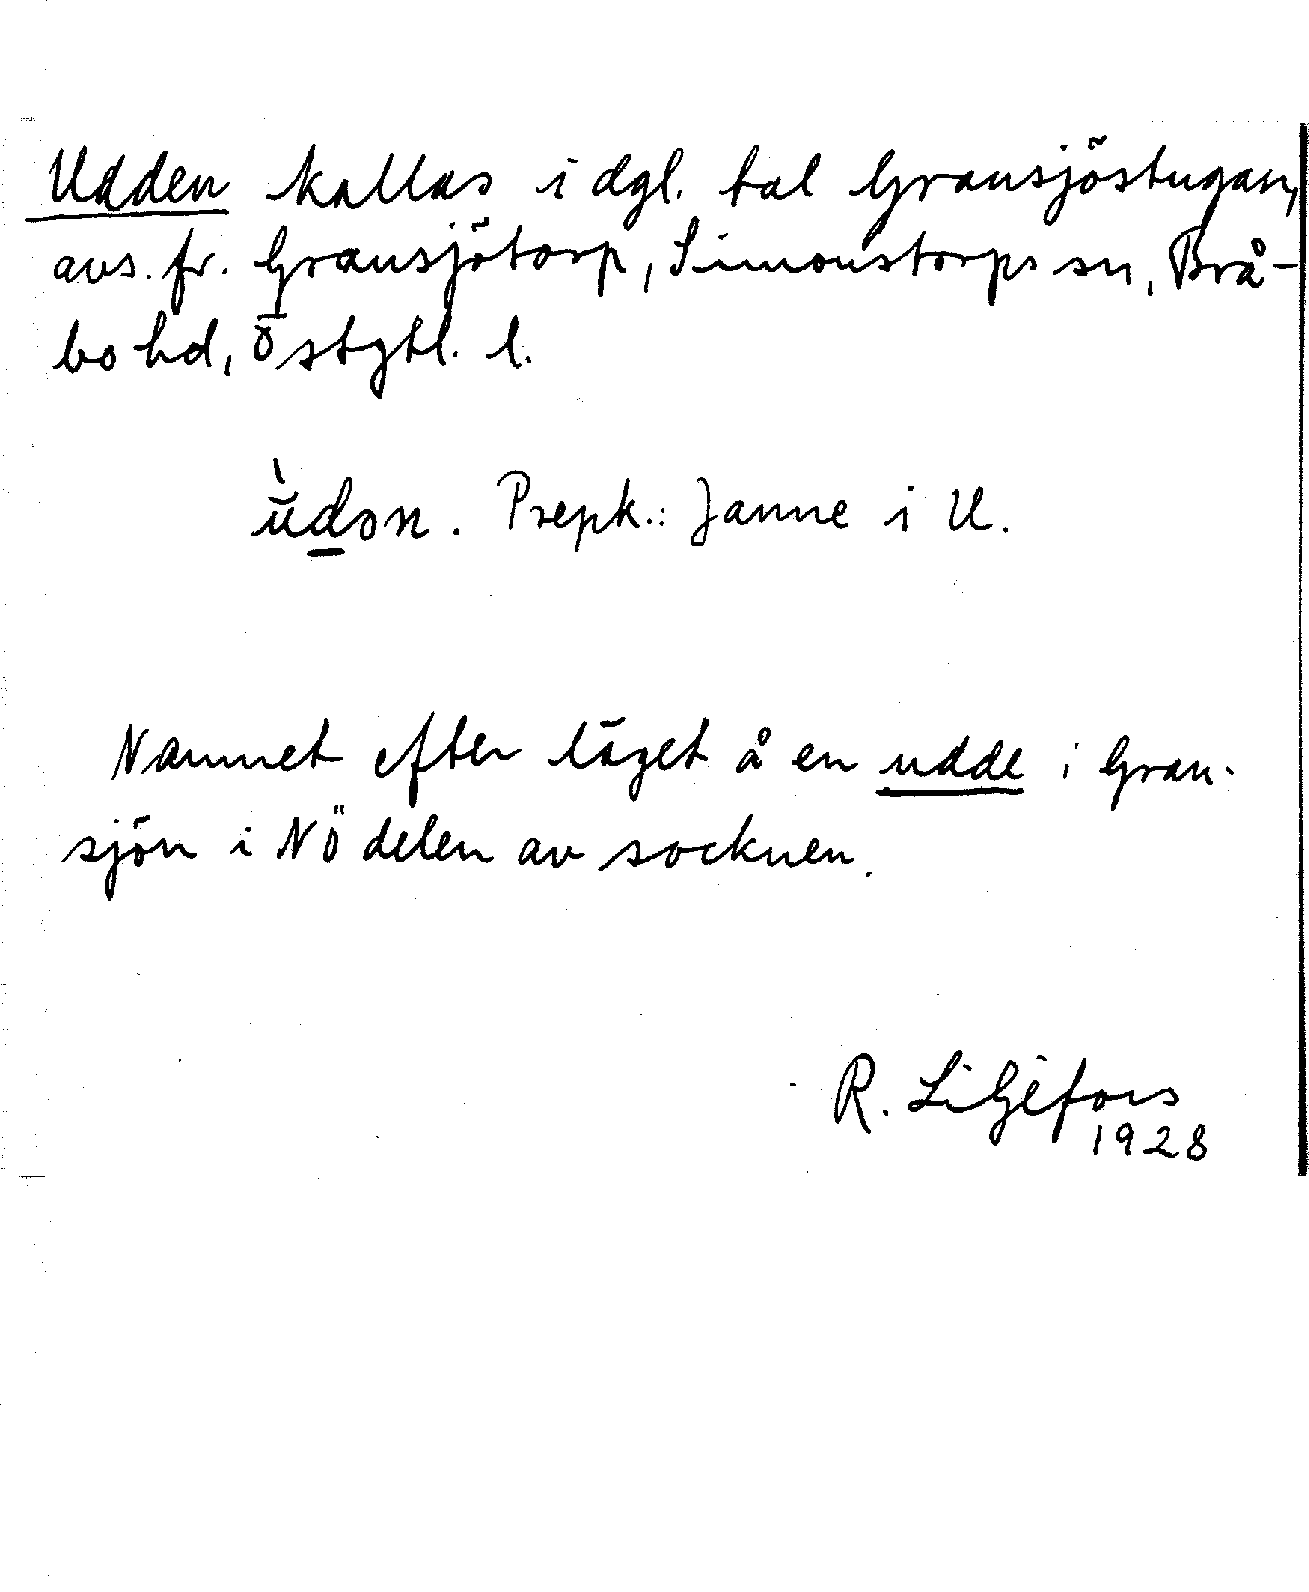 Udden kallas i dgl. tal Gransjöstugan,
avs. fr. Gransjötorp, Simonstorps sn, Brå-
bo hd, Östgtl. l.
ùdon. Prepk.: Janne i U.
Namnet efter läget å en udde i Gran-
sjön i NÖ delen av socknen.
R. Liljefors
1928